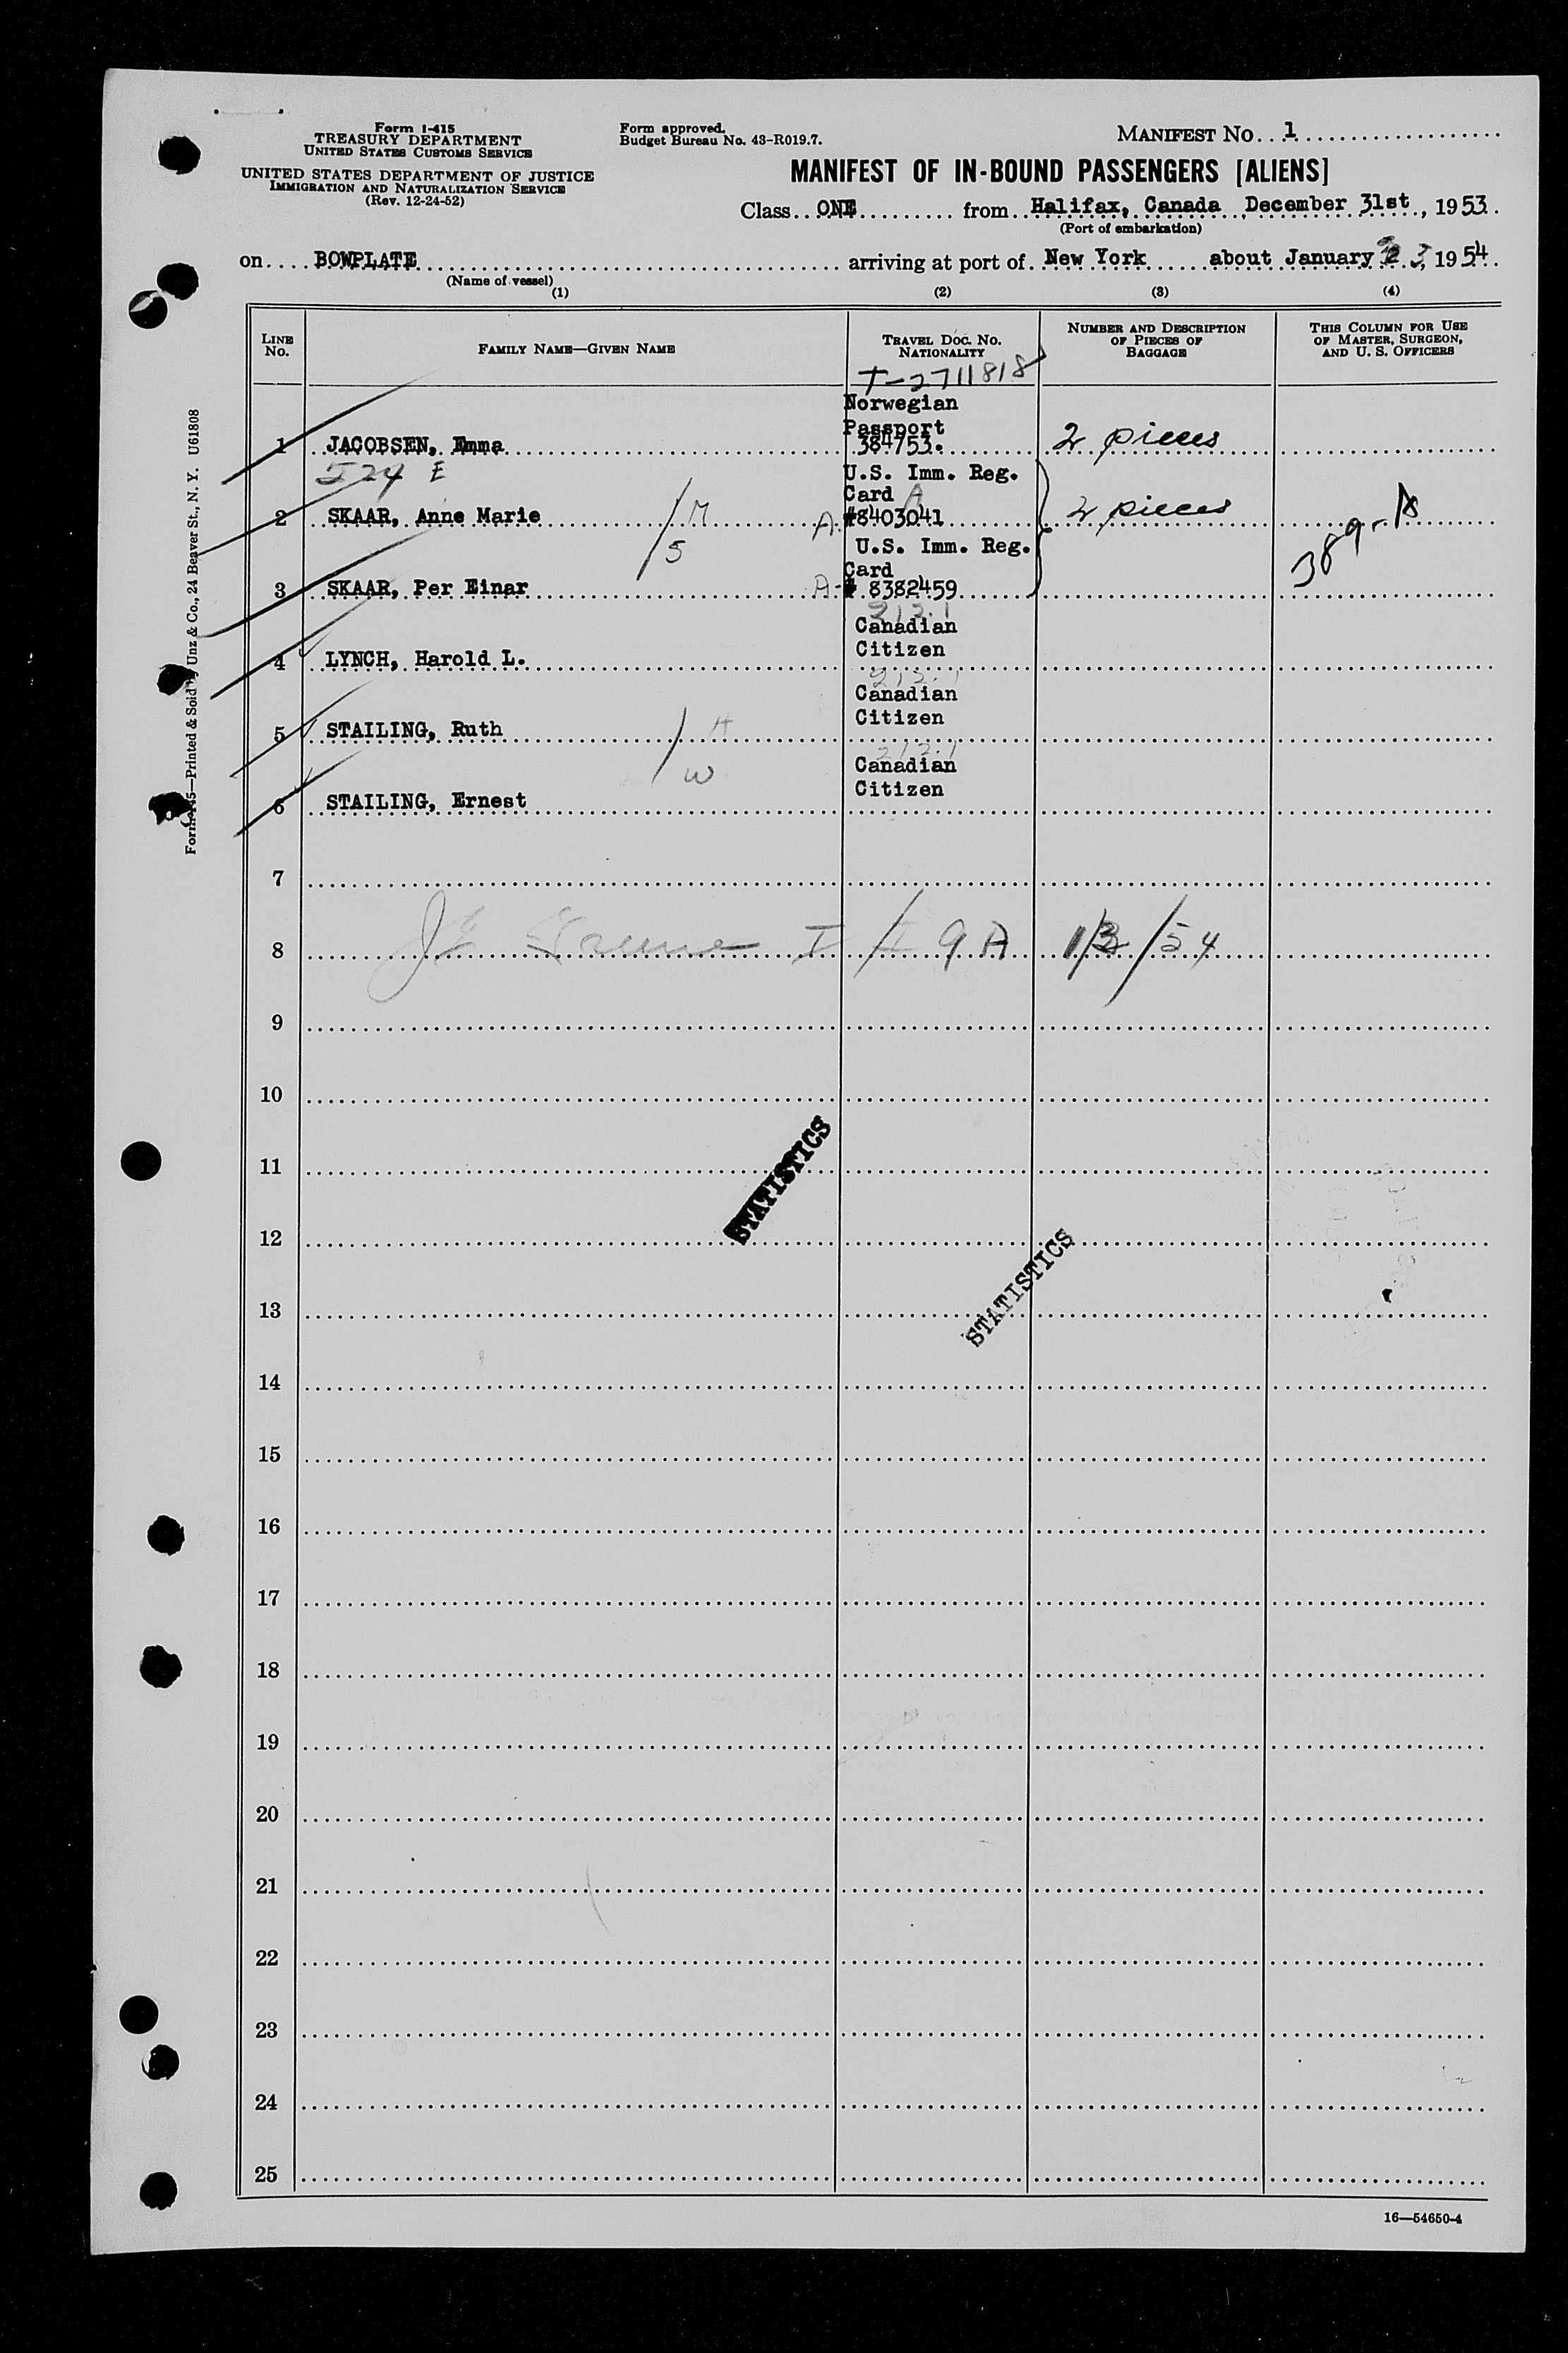 Form I-415
TREASURY DEPARTMENT
UNITED STATES CUSTOMS SERVICE
UNITED STATES DEPARTMENT OF JUSTICE
IMMIGRATION AND NATURALIZATION SERVICE
(Rev. 12-24-52)
Form approved.
Budget Bureau No. 43-R019.7.
MANIFEST NO. 1
MANIFEST OF IN-BOUND PASSENGERS [ALIENS]
Class ONE from Halifax, Canada, December 31st, 1953.
(Port of embarkation)
on BOWPLATE arriving at port of New York about January 3, 1954.
(Name of vessel)
(1) (2) (3) (4)
LINE NO.
FAMILY NAME—GIVEN NAME
TRAVEL DOC. NO. NATIONALITY
NUMBER AND DESCRIPTION OF PIECES OF BAGGAGE
THIS COLUMN FOR USE OF MASTER, SURGEON, AND U. S. OFFICERS
T-2711818
Norwegian
Passport
1 JACOBSEN, Emma 384753. 2 pieces
524 E
U.S. Imm. Reg.
Card
2 SKAAR, Anne Marie / M A #8403041 2 pieces
S
U.S. Imm. Reg.
Card
3 SKAAR, Per Einar A-# 8382459
212.1
Canadian
4 LYNCH, Harold L. Citizen
212.1
Canadian
Citizen
5 STAILING, Ruth / H
W
212.1
Canadian
Citizen
6 STAILING, Ernest
7
8 9 A 1/3/54
9
10
11
STATISTICS
12
STATISTICS
13
14
15
16
17
18
19
20
21
22
23
24
25
16—54650-4
Printed & Sold by Unz & Co., 24 Beaver St., N. Y. U61808